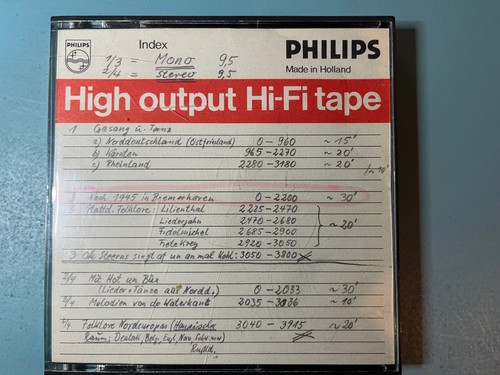 PHILIPS
Index
PHILIPS
Made in Holland
1/3 = Mono 9,5
2/4 = Stereo 9,5
High output Hi-Fi tape
1 Gesang u. Tanz
a) Norddeutschland (Ostfriesland) 0-960 ~ 15'
b) Kärnten 965-2270 ~ 20'
c) Rheinland 2280-3180 ~ 20'
Nach 1945 in Bremerhaven 0-2200 ~ 30'
Plattd. Folklore: Lilienthal 2225-2470
Liederjahn 2470-2680
Fidelmichel 2685-2900
Fiele Kreg 2920-3050
~ 20'
3 singt af un an mal 3050-3800
2/4 Mit Hot un Büx
(Lieder + Tänze aus Nordd.) 0-2033 ~ 30'
2/4 Melodien van de Waterkant 2035-3036 ~ 10'
2/4 Folklore Nordeuropas (Hansische 3040-3915 ~ 20'
Raum: